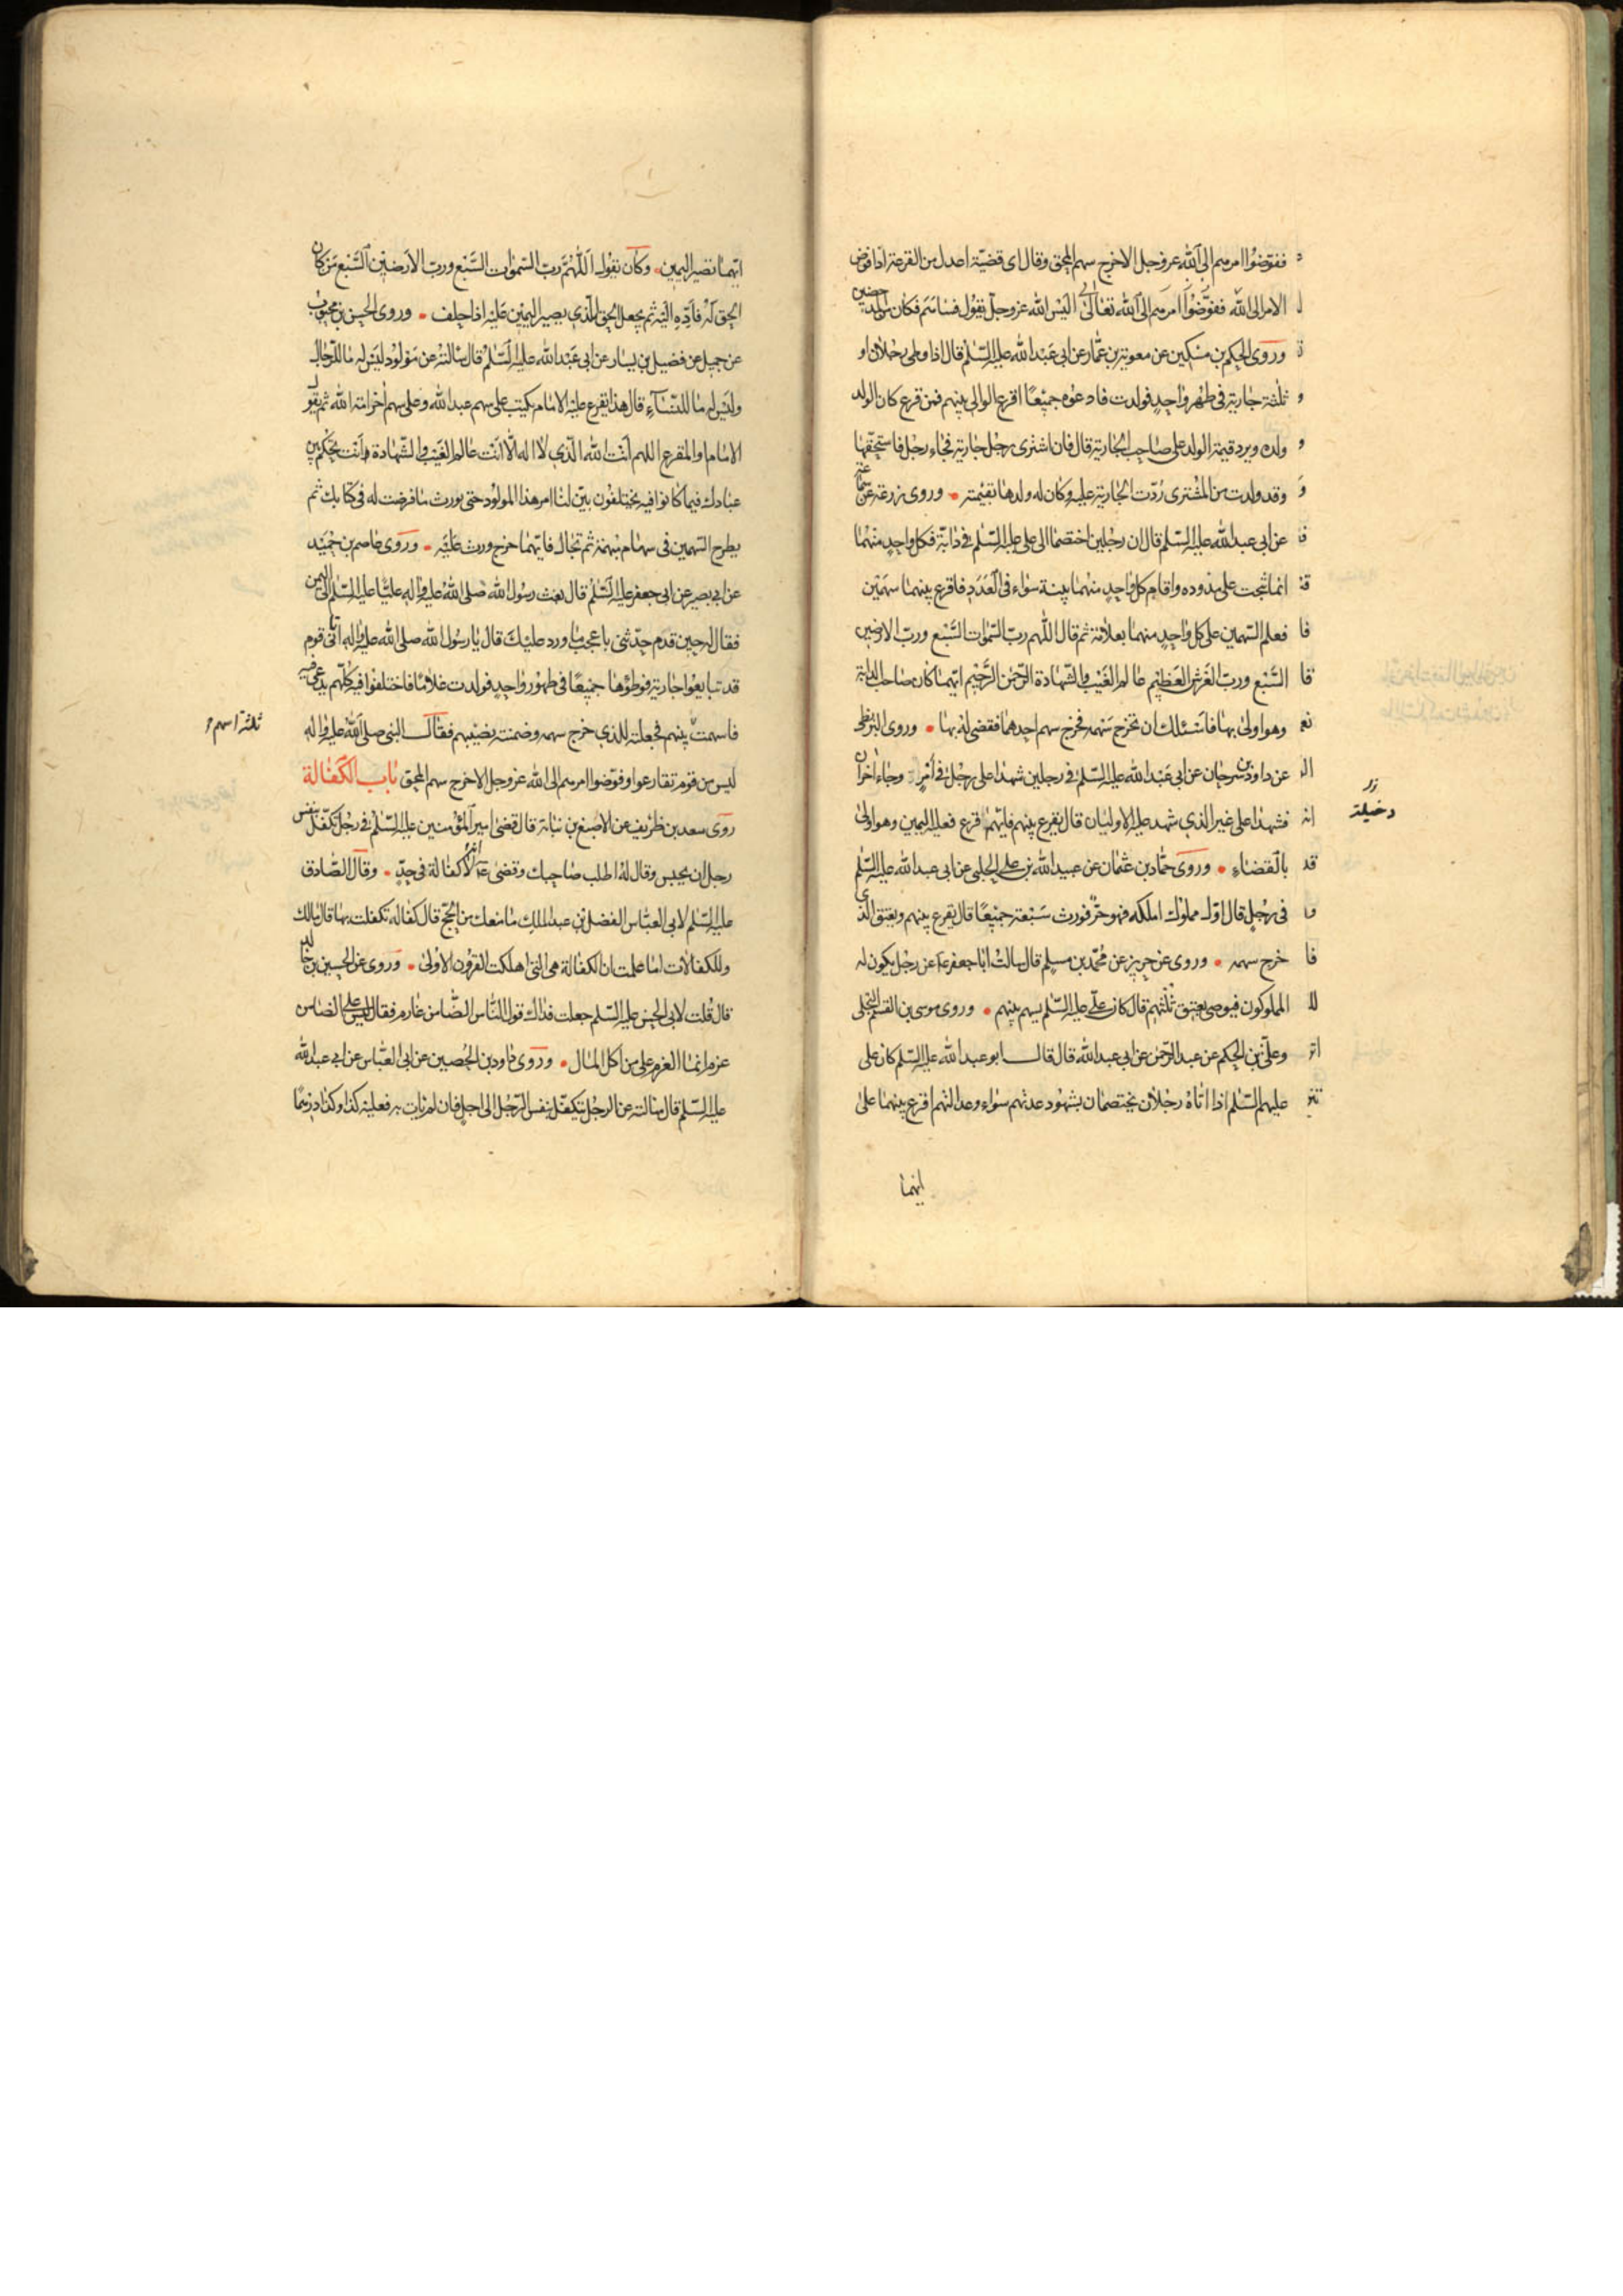 ففوّضوا امرهم الى الله عز وجل الا خرج سهم المحق وقال اى قضيّة اعدل من القرعة اذا فوض
الامر الى الله ففوّضوا امرهم الى الله تعالى اليس الله عز وجل يقول فساهم فكان من المدحضين
وروى الحكم بن مسكين عن معوية بن عمّار عن ابى عبد الله عليه السّلم قال اذا وطى رجلان او
ثلثة جارية فى طهر واحد فولدت فادعوه جميعًا اقرع الوالى بينهم فمن قرع كان الولد
ولده ويرد قيمة الولد على صاحب الجارية قال فان اشترى رجل جارية فجاء رجل فاستحقّها
وقد ولدت من المشترى ردّت الجارية عليه وكان له ولدها بقيمته وروى زرعة عن سماعة
عن ابى عبد الله عليه السّلم قال ان رجلين اختصما الى على عليه السّلم فى دابّة فكل واحد منهما
انما نتجت على مذوده واقام كل واحد منهما بينة سواء فى العدد فاقرع بينهما سهمين
فعلم السّهمين على كل واحد منهما بعلامة ثم قال اللهم ربّ السّموات السّبع وربّ الارضين
السّبع وربّ العرش العظيم عالم الغيب والشّهادة الرّحمن الرّحيم ايّهما كان صاحب الدابة
وهو اولى بها فاسئلك ان تخرج سهمه فخرج سهم احدهما فقضى له بها وروى البزنطى
عن داود بن سرحان عن ابى عبد الله عليه السّلم فى رجلين شهدا على رجل فى أمر وجاء اخران
فشهدا على غير الذى شهد عليه الاوليان قال يقرع بينهم فايّهم قرع فعليه اليمين وهو اولى
بالقضاء وروى حمّاد بن عثمان عن عبيد الله بن على الحلبى عن ابى عبد الله عليه السّلم
فى رجل قال اوّل مملوك املكه فهو حرّ فورث سبعة جميعًا قال يقرع بينهم ويعتق الذى
خرج سهمه وروى عن حريز عن محمّد بن مسلم قال سالت ابا جعفر ع عن رجل يكون له
المملوكون فيوصى بعتق ثلثهم قال كان علىّ عليه السّلم يسهم بينهم وروى موسى بن القسم البجلى
وعلىّ بن الحكم عن عبد الرّحمن عن ابى عبد الله قال قال ابو عبد الله عليه السّلم كان على
عليهم السّلم اذا اتاه رجلان يختصمان بشهود عدتهم سواء وعدالتهم اقرع بينهما على
ايهما
ايّهما تصير اليمين وكان يقول اللّهمّ ربّ السّموات السّبع وربّ الارضين السّبع من كان
الحق له فأدّه اليه ثم يجعل الحق للّذى يصير اليمين عليه اذا حلف وروى الحسن بن محبوب
عن جميل عن فضيل بن يسار عن ابى عبد الله عليه السّلم قال سالته عن مولود ليس له ما للرّجال
وليس له ما للنّساء قال هذا يقرع عليه الامام يكتب على سهم عبد الله وعلى سهم اخر امة الله ثم يقول
الامام او المقرع اللهم أنت الله الّذى لا اله الا انت عالم الغيب والشّهادة أنت تحكم بين
عبادك فيما كانوا فيه يختلفون بيّن لنا امر هذا المولود حتى يورث ما فرضت له فى كتابك ثم
يطرح السّهمين فى سهام مبهمة ثم تجال فايّهما خرج ورث عليه وروى عاصم بن حميد
عن ابى بصير عن ابى جعفر عليه السّلم قال بعث رسول الله صلى الله عليه واله عليًّا عليه السّلم الى اليمن
فقال له حين قدم حدّثنى باعجب ما ورد عليك قال يا رسول الله صلى الله عليه واله اتانى قوم
قد تبايعوا جارية فوطؤها جميعًا فى طهر واحد فولدت غلامًا فاختلفوا فيه كلّهم يدعى فيه
فاسهمت بينهم فجعلته للذى خرج سهمه وضمنته نصيبهم فقال النبى صلى الله عليه واله
ثلثة اسهم
ليس من قوم تقارعوا وفوّضوا امرهم الى الله عز وجل الا خرج سهم المحق باب الكفالة
روى سعد بن طريف عن الاصبغ بن نباتة قال قضى امير المؤمنين عليه السّلم فى رجل تكفّل بنفس
رجل ان يحبس وقال له اطلب صاحبك وقضى ع انّه لا كفالة فى حدّ وقال الصّادق
عليه السّلم لابى العبّاس الفضل بن عبد الملك ما منعك من الحجّ قال كفاله تكفلت بها قال مالك
وللكفالات اما علمت ان الكفالة هى التى اهلكت القرون الاولى وروى عن الحسين بن خالد
قال قلت لابى الحسن عليه السّلم جعلت فداك قول النّاس الضّامن غارم فقال ليس على الضامن
غرم انما الغرم على من اكل المال وروى داود بن الحصين عن ابى العبّاس عن ابى عبد الله
عليه السّلم قال سالته عن الرجل يتكفّل بنفس الرّجل الى اجل فان لم يات به فعليه كذا وكذا درهمًا